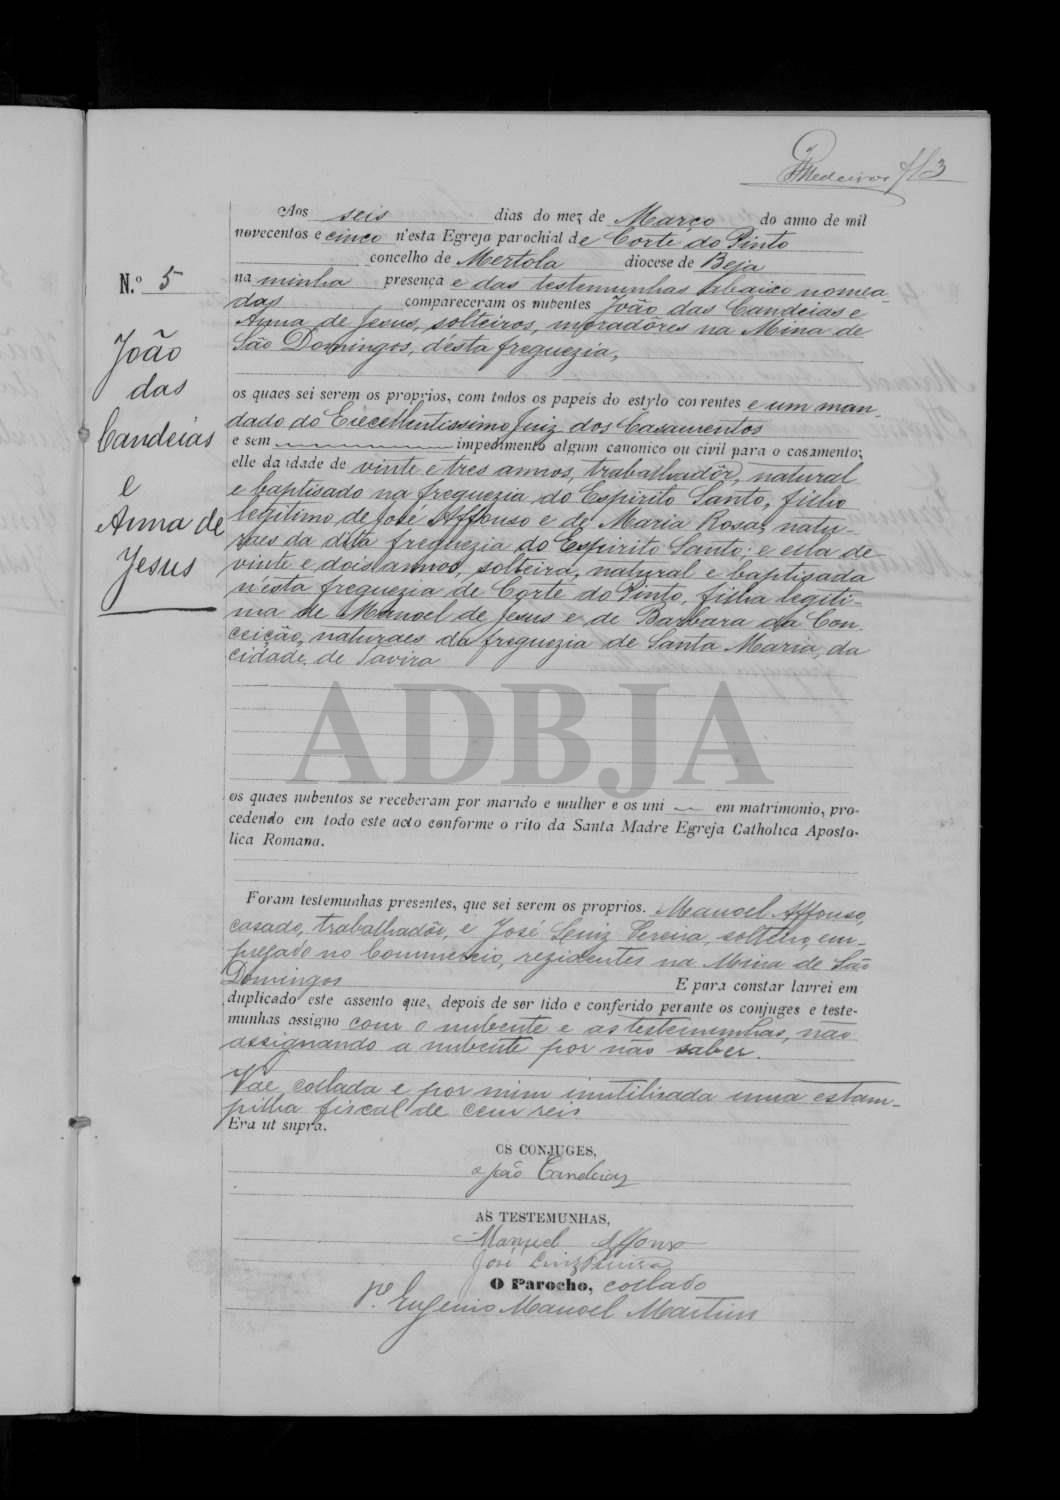 Medeiros
Aos seis dias do mez de Março do anno de mil
novecentos e cinco n'esta Egreja parochial de Corte do Pinto
concelho de Mertola diocese de Beja
na minha presença e das testemunhas abaixo nomea-
das compareceram os nubentes João das Candeias e
Anna de Jesus, solteiros, moradôres na Mina de
São Domingos, d'esta freguezia,
N.º 5
João
das
Candeias
e
Anna de
Jesus
os quaes sei serem os proprios, com todos os papeis do estylo correntes e um man-
dado do Excellentissimo Juiz dos Casamentos
e sem impedimento algum canonico ou civil para o casamento;
elle da idade de vinte e tres annos, trabalhadôr, natural
e baptisado na freguezia do Espirito Santo, filho
legitimo de José Affonso e de Maria Rosa, natu-
raes da dita freguezia do Espirito Santo; e ella de
vinte e dois annos, solteira, natural e baptisada
n'esta freguezia de Corte do Pinto, filha legiti-
ma de Manoel de Jesus e de Barbara da Con-
ceição, naturaes da freguezia de Santa Maria, da
cidade de Tavira
ADBJA
os quaes nubentes se receberam por marido e mulher e os uni em matrimonio, pro-
cedendo em todo este acto conforme o rito da Santa Madre Egreja Catholica Aposto-
lica Romana.
Foram testemunhas presentes, que sei serem os proprios. Manoel Affonso,
casado, trabalhadôr, e José Luiz Pereira, solteiro, em-
pregado no Commercio, rezidentes na Mina de São
Domingos E para constar lavrei em
duplicado este assento que, depois de ser lido e conferido perante os conjuges e teste-
munhas assigno com o nubente e as testemunhas, não
assignando a nubente por não saber.
Vae collada e por mim inutilisada uma estam-
pilha fiscal de cem reis
Era ut supra.
OS CONJUGES,
João Candeias
AS TESTEMUNHAS,
Manuel Affonso
José Luiz Pereira
O Parocho, collado
P.e Eugenio Manoel Martins